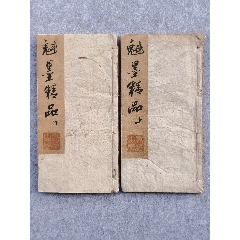 魁墨精品 上
魁墨精品 下